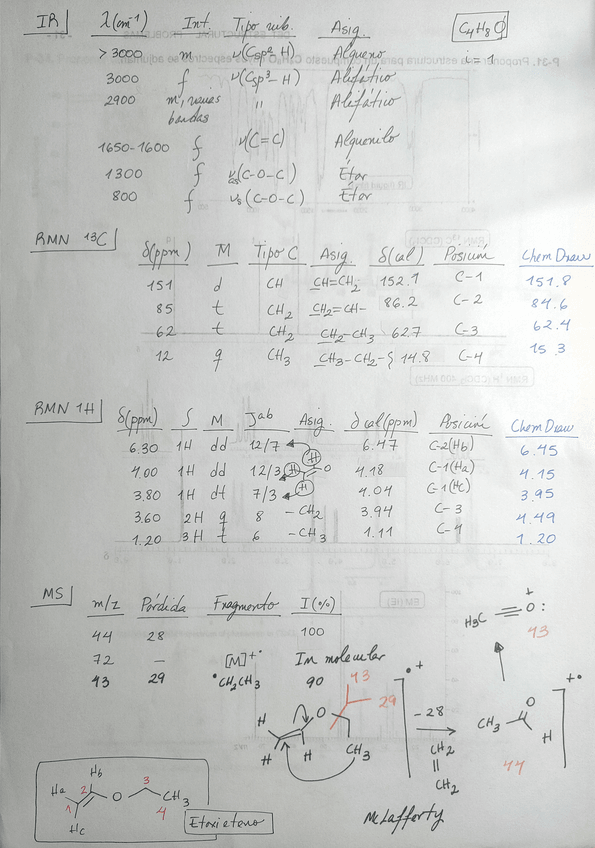 IR λ(cm⁻¹) Int. Tipo vib. Asig. C₄H₈O
> 3000 m ν(Csp²-H) Alqueno i = 1
3000 f ν(Csp³-H) Alifático
2900 m, varias bandas " Alifático
1650-1600 f ν(C=C) Alquenilo
1300 f νas(C-O-C) Éter
800 f νs(C-O-C) Éter
RMN 13C
δ(ppm) M Tipo C Asig. δ(cal) Posición ChemDraw
151 d CH CH=CH₂ 152.1 C-1 151.8
85 t CH₂ CH₂=CH- 86.2 C-2 84.6
62 t CH₂ CH₂-CH₃ 62.7 C-3 62.4
12 q CH₃ CH₃-CH₂-{ 14.8 C-4 15.3
RMN 1H
δ(ppm) ∫ M Jab Asig. δ cal(ppm) Posición ChemDraw
6.30 1H dd 12/7 H 6.47 C-2(Hb) 6.45
4.00 1H dd 12/3 H O 4.18 C-1(Ha) 4.15
3.80 1H dt 7/3 H 4.04 C-1(Hc) 3.95
3.60 2H q 8 -CH₂ 3.94 C-3 4.49
1.20 3H t 6 -CH₃ 1.11 C-4 1.20
MS
m/z Pérdida Fragmento I(%)
44 28 100
72 — [M]⁺· Im molecular
43 29 ·CH₂CH₃ 90
H₃C ≡ O: +
43
43
29
H O
H H
CH₃
·+
-28
CH₂
||
CH₂
CH₃ O
H
44
+·
McLafferty
Ha Hb 1 2 O 3 CH₃ 4
Hc
Etoxieteno